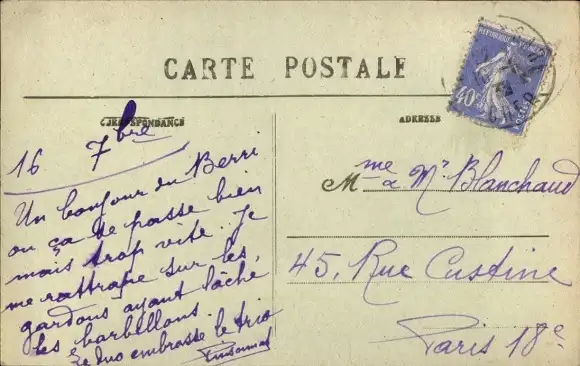 CARTE POSTALE
CORRESPONDANCE
ADRESSE
REPUBLIQUE FRANÇAISE
40c
POSTES
CHER
16 7bre
Un bonjour du Berri
ou ça se passe bien
mais trop vite. Je
me rattrape sur les
gardons ayant lâché
les barbillons.
Le duo embrasse le trio
Mme & Mr Blanchaud
45, Rue Custine
Paris 18e